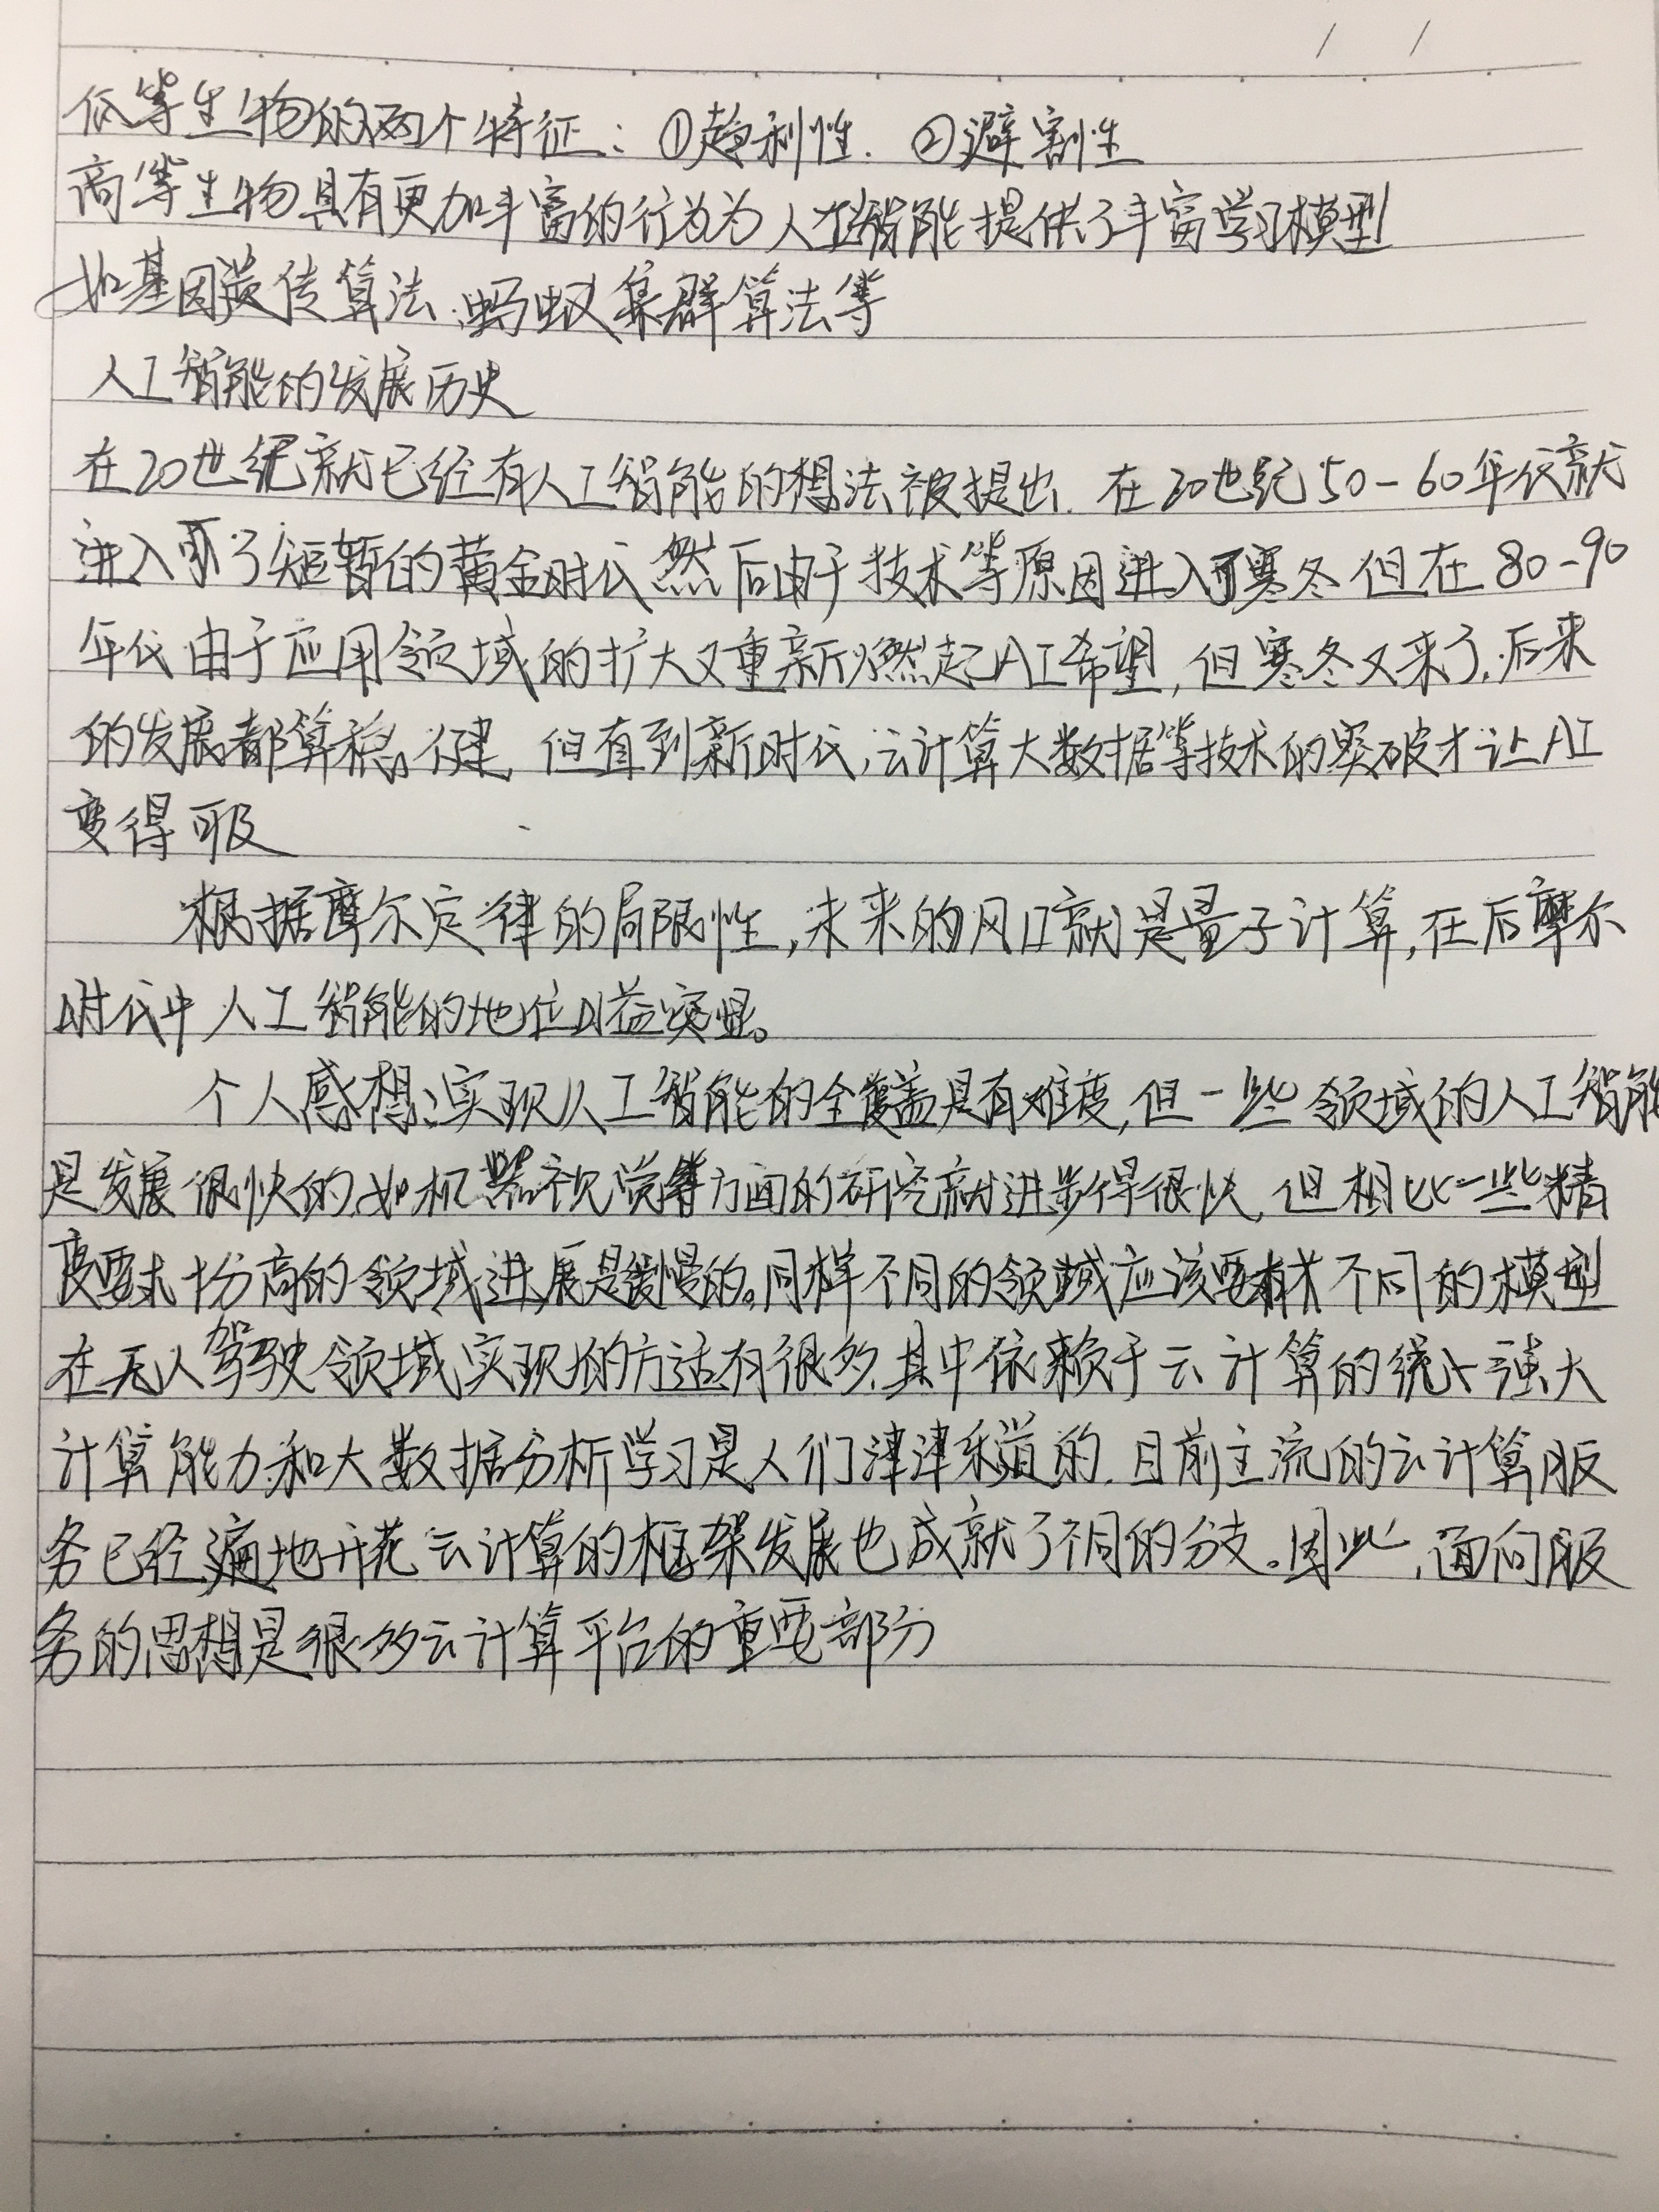 低等生物的两个特征：①趋利性.②避害性
高等生物具有更加丰富的行为为人工智能提供了丰富学习模型
如基因遗传算法、蚂蚁集群算法等
人工智能的发展历史
在20世纪就已经有人工智能的想法被提出.在20世纪50-60年代就
进入了短暂的黄金时代然后由于技术等原因进入了寒冬但在80-90
年代由于应用领域的扩大又重新燃起AI希望,但寒冬又来了.后来
的发展都算稳健,但直到新时代,云计算大数据等技术的突破才让AI
变得可及
根据摩尔定律的局限性,未来的风口就是量子计算,在后摩尔
时代中人工智能的地位日益突显。
个人感想:实现人工智能的全覆盖具有难度,但一些领域的人工智能
是发展很快的.如机器视觉等方面的研究就进步得很快,但相比一些精
度要求十分高的领域进展是缓慢的。同样不同的领域应该要有不同的模型
在无人驾驶领域实现的方法有很多.其中依赖于云计算的强大
计算能力和大数据分析学习是人们津津乐道的.目前主流的云计算服
务已经遍地开花云计算的框架发展也成就了不同的分支。因此,面向服
务的思想是很多云计算平台的重要部分